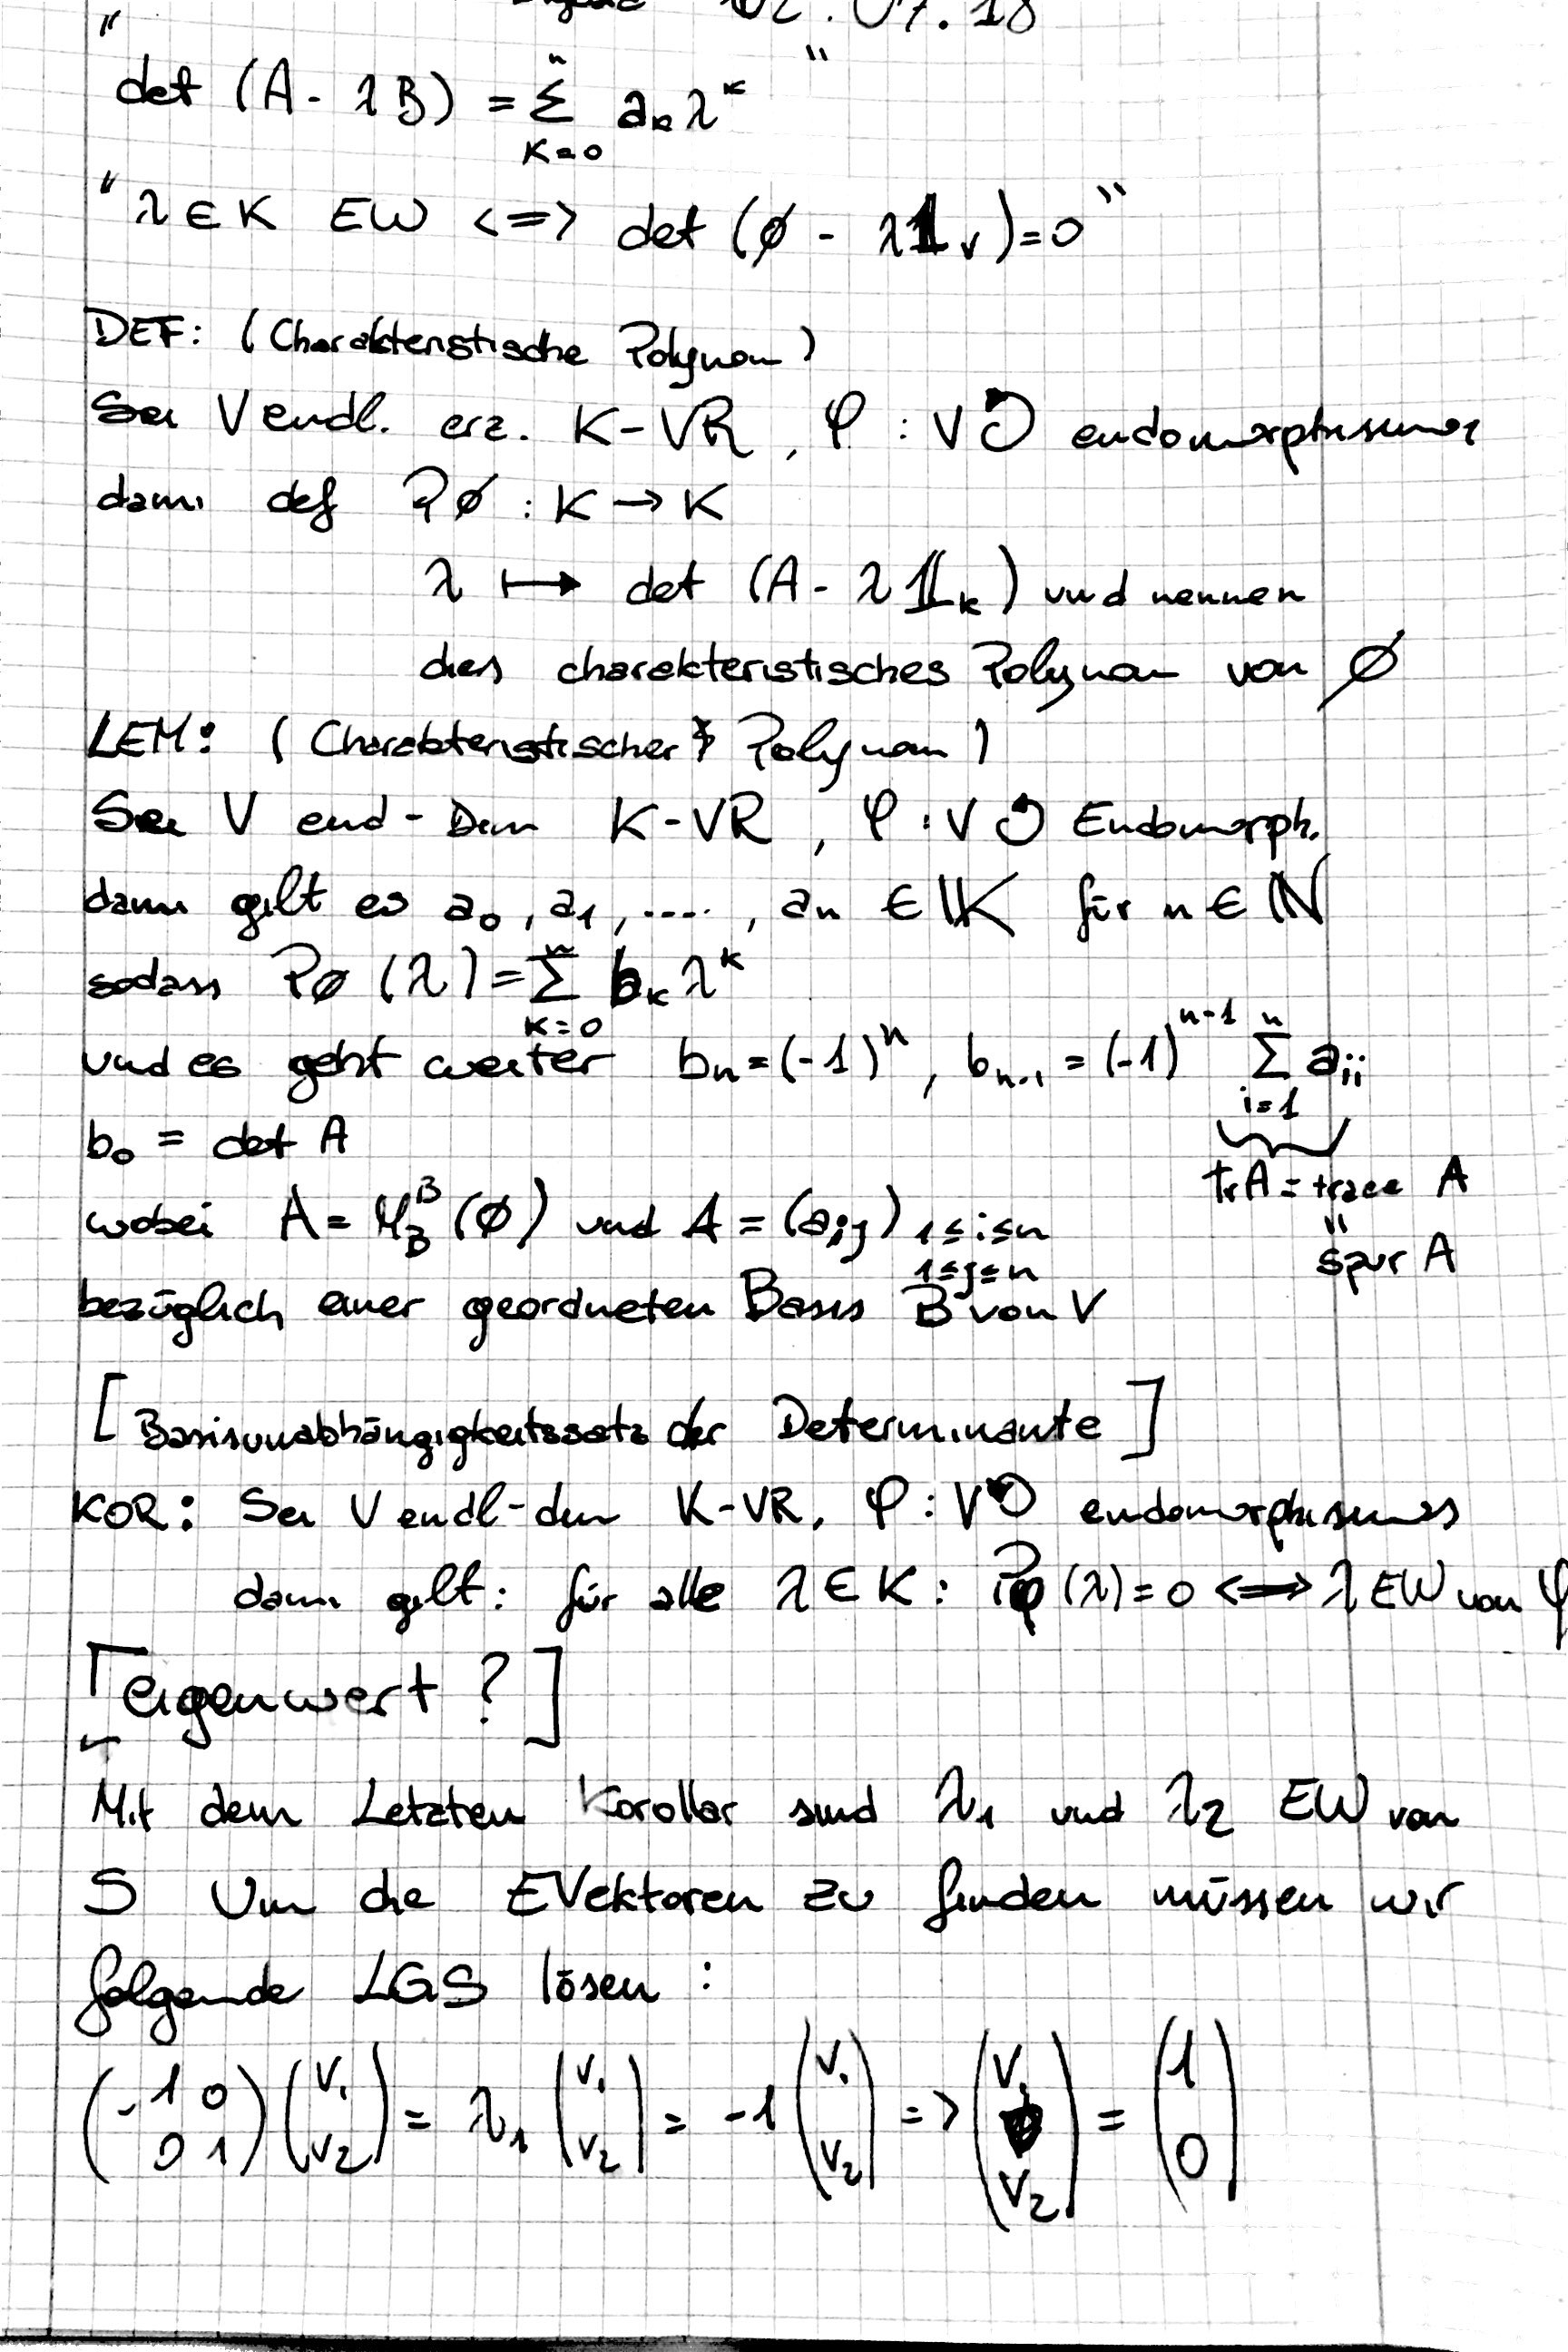 02.07.18
" det (A - λB) = Σ_{K=0}^{n} a_k λ^k "
" λ ∈ K EW <=> det (ϕ - λ𝟙_V) = 0 "
DEF: (Charakteristische Polynom)
Sei V endl. erz. K-VR, φ : V ↺ endomorphismus
dann def Pϕ : K → K
λ ↦ det (A - λ𝟙_k) und nennen
dies charakteristisches Polynom von ϕ
LEM: (Charakteristischer Polynom)
Sei V end-Dim K-VR, φ : V ↺ Endomorph.
dann gilt es a_0, a_1, ...., a_n ∈ 𝕂 für n ∈ ℕ
sodass Pϕ (λ) = Σ_{K=0}^{n} b_k λ^k
und es geht weiter b_n = (-1)^n, b_{n-1} = (-1)^{n-1} Σ_{i=1}^{n} a_{ii}
b_0 = det A
tr A = trace A
wobei A = M_B^B (ϕ) und A = (a_{ij}) 1≤i≤n
1≤j≤n
" spur A
bezüglich einer geordneten Basis B von V
[Basisunabhängigkeitssatz der Determinante]
KOR: Sei V endl-dim K-VR, φ : V ↺ endomorphismus
dann gilt: für alle λ ∈ K : Pφ (λ) = 0 <=> λ EW von φ
[eigenwert ?]
Mit dem Letzten Korollar sind λ_1 und λ_2 EW von
S Um die EVektoren zu finden müssen wir
folgende LGS lösen :
(-1 0 / 0 1) (v_1 / v_2) = λ_1 (v_1 / v_2) = -1 (v_1 / v_2) => (v_1 / v_2) = (1 / 0)